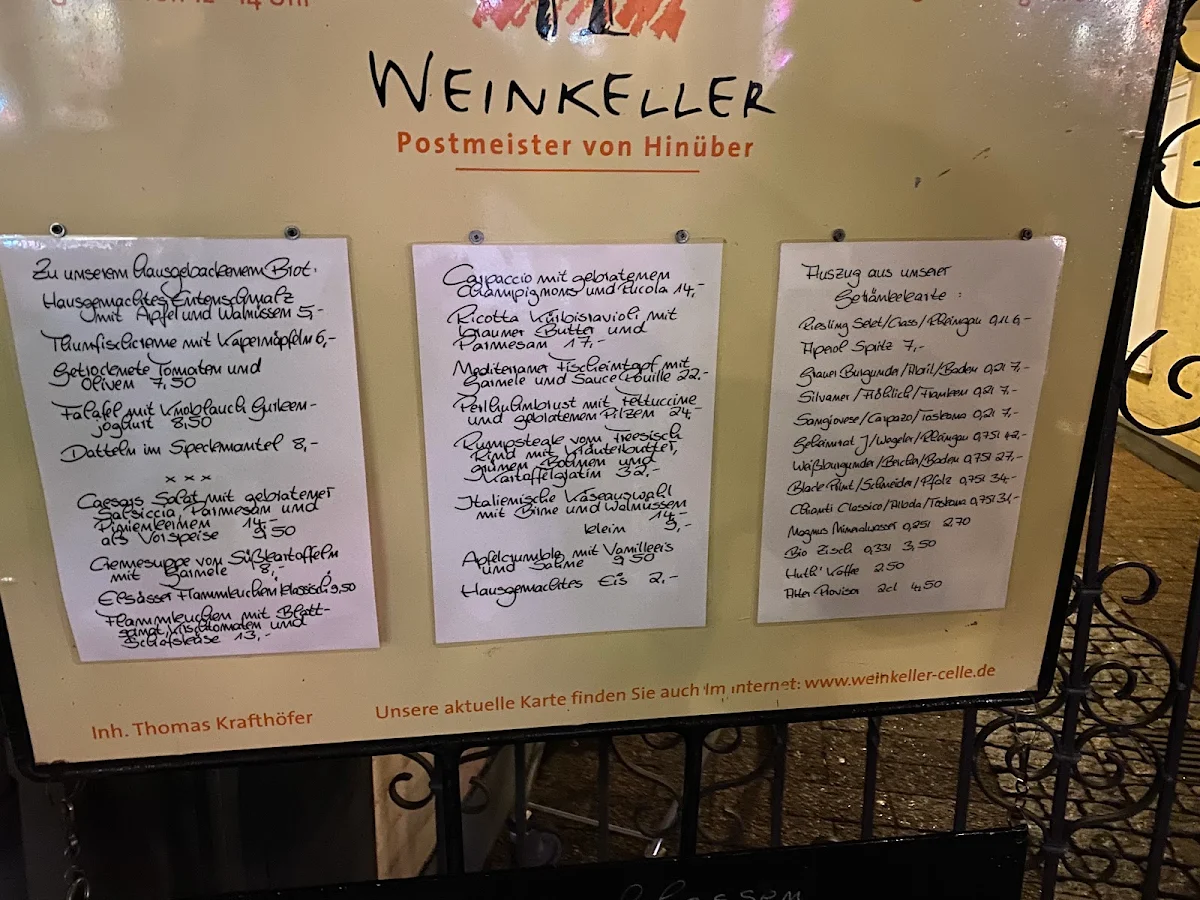 WEINKELLER
Postmeister von Hinüber
Zu unserem hausgebackenem Brot:
Hausgemachtes Entenschmalz
mit Apfel und Walnüssen 5,-
Thunfischcreme mit Kapernäpfeln 6,-
Getrocknete Tomaten und
Oliven 7,50
Falafel mit Knoblauch Gurken-
joghurt 8,50
Datteln im Speckmantel 8,-
x x x
Caesars Salat mit gebratener
Salsiccia, Parmesan und
Pinienkernen 14,-
als Vorspeise 9,50
Cremesuppe von Süßkartoffeln
mit Garnele 8,-
Elsässer Flammkuchen klassisch 9,50
Flammkuchen mit Blatt-
spinat, Kirschtomaten und
Schafskäse 13,-
Carpaccio mit gebratenen
Champignons und Rucola 14,-
Ricotta Kürbisravioli mit
brauner Butter und
Parmesan 17,-
Mediterraner Fischeintopf mit
Garnele und Sauce Rouille 22,-
Perlhuhnbrust mit Fettuccine
und gebratenen Pilzen 24,-
Rumpsteak vom Friesisch
Rind mit Kräuterbutter,
grünen Bohnen und
Kartoffelgratin 32,-
Italienische Käseauswahl
mit Birne und Walnüssen
14,-
klein 9,-
Apfelcrumble mit Vanilleeis
und Sahne 9,50
Hausgemachtes Eis 2,-
Auszug aus unserer
Getränkekarte :
Riesling Sekt/Crass/Rheingau 0,1l 6,-
Aperol Spritz 7,-
Grauer Burgunder/Abril/Baden 0,2l 7,-
Silvaner/Fröhlich/Franken 0,2l 7,-
Sangiovese/Carpazo/Toskana 0,2l 7,-
Geheimrat J/Wegeler/Rheingau 0,75l 42,-
Weißburgunder/Bercher/Baden 0,75l 27,-
Black Print/Schneider/Pfalz 0,75l 34,-
Chianti Classico/Albola/Toskana 0,75l 31,-
Magnus Mineralwasser 0,25l 2,70
Bio Zisch 0,33l 3,50
Huth' Kaffee 2,50
Alter Provisor 2cl 4,50
Inh. Thomas Krafthöfer
Unsere aktuelle Karte finden Sie auch im Internet: www.weinkeller-celle.de